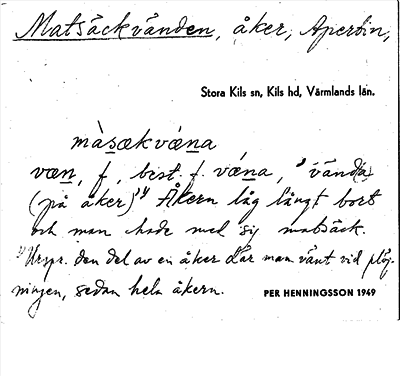 Matsäckvänden, åker, Apertin,
Stora Kils sn, Kils hd, Värmlands län.
màsækvæna
væn, f, best. f. vǽna, "vända
(på åker)¹⁾ Åkern låg långt bort
och man hade med sig matsäck.
¹⁾ Urspr. den del av en åker där man vänt vid plöj-
ningen, sedan hela åkern.
PER HENNINGSSON 1949